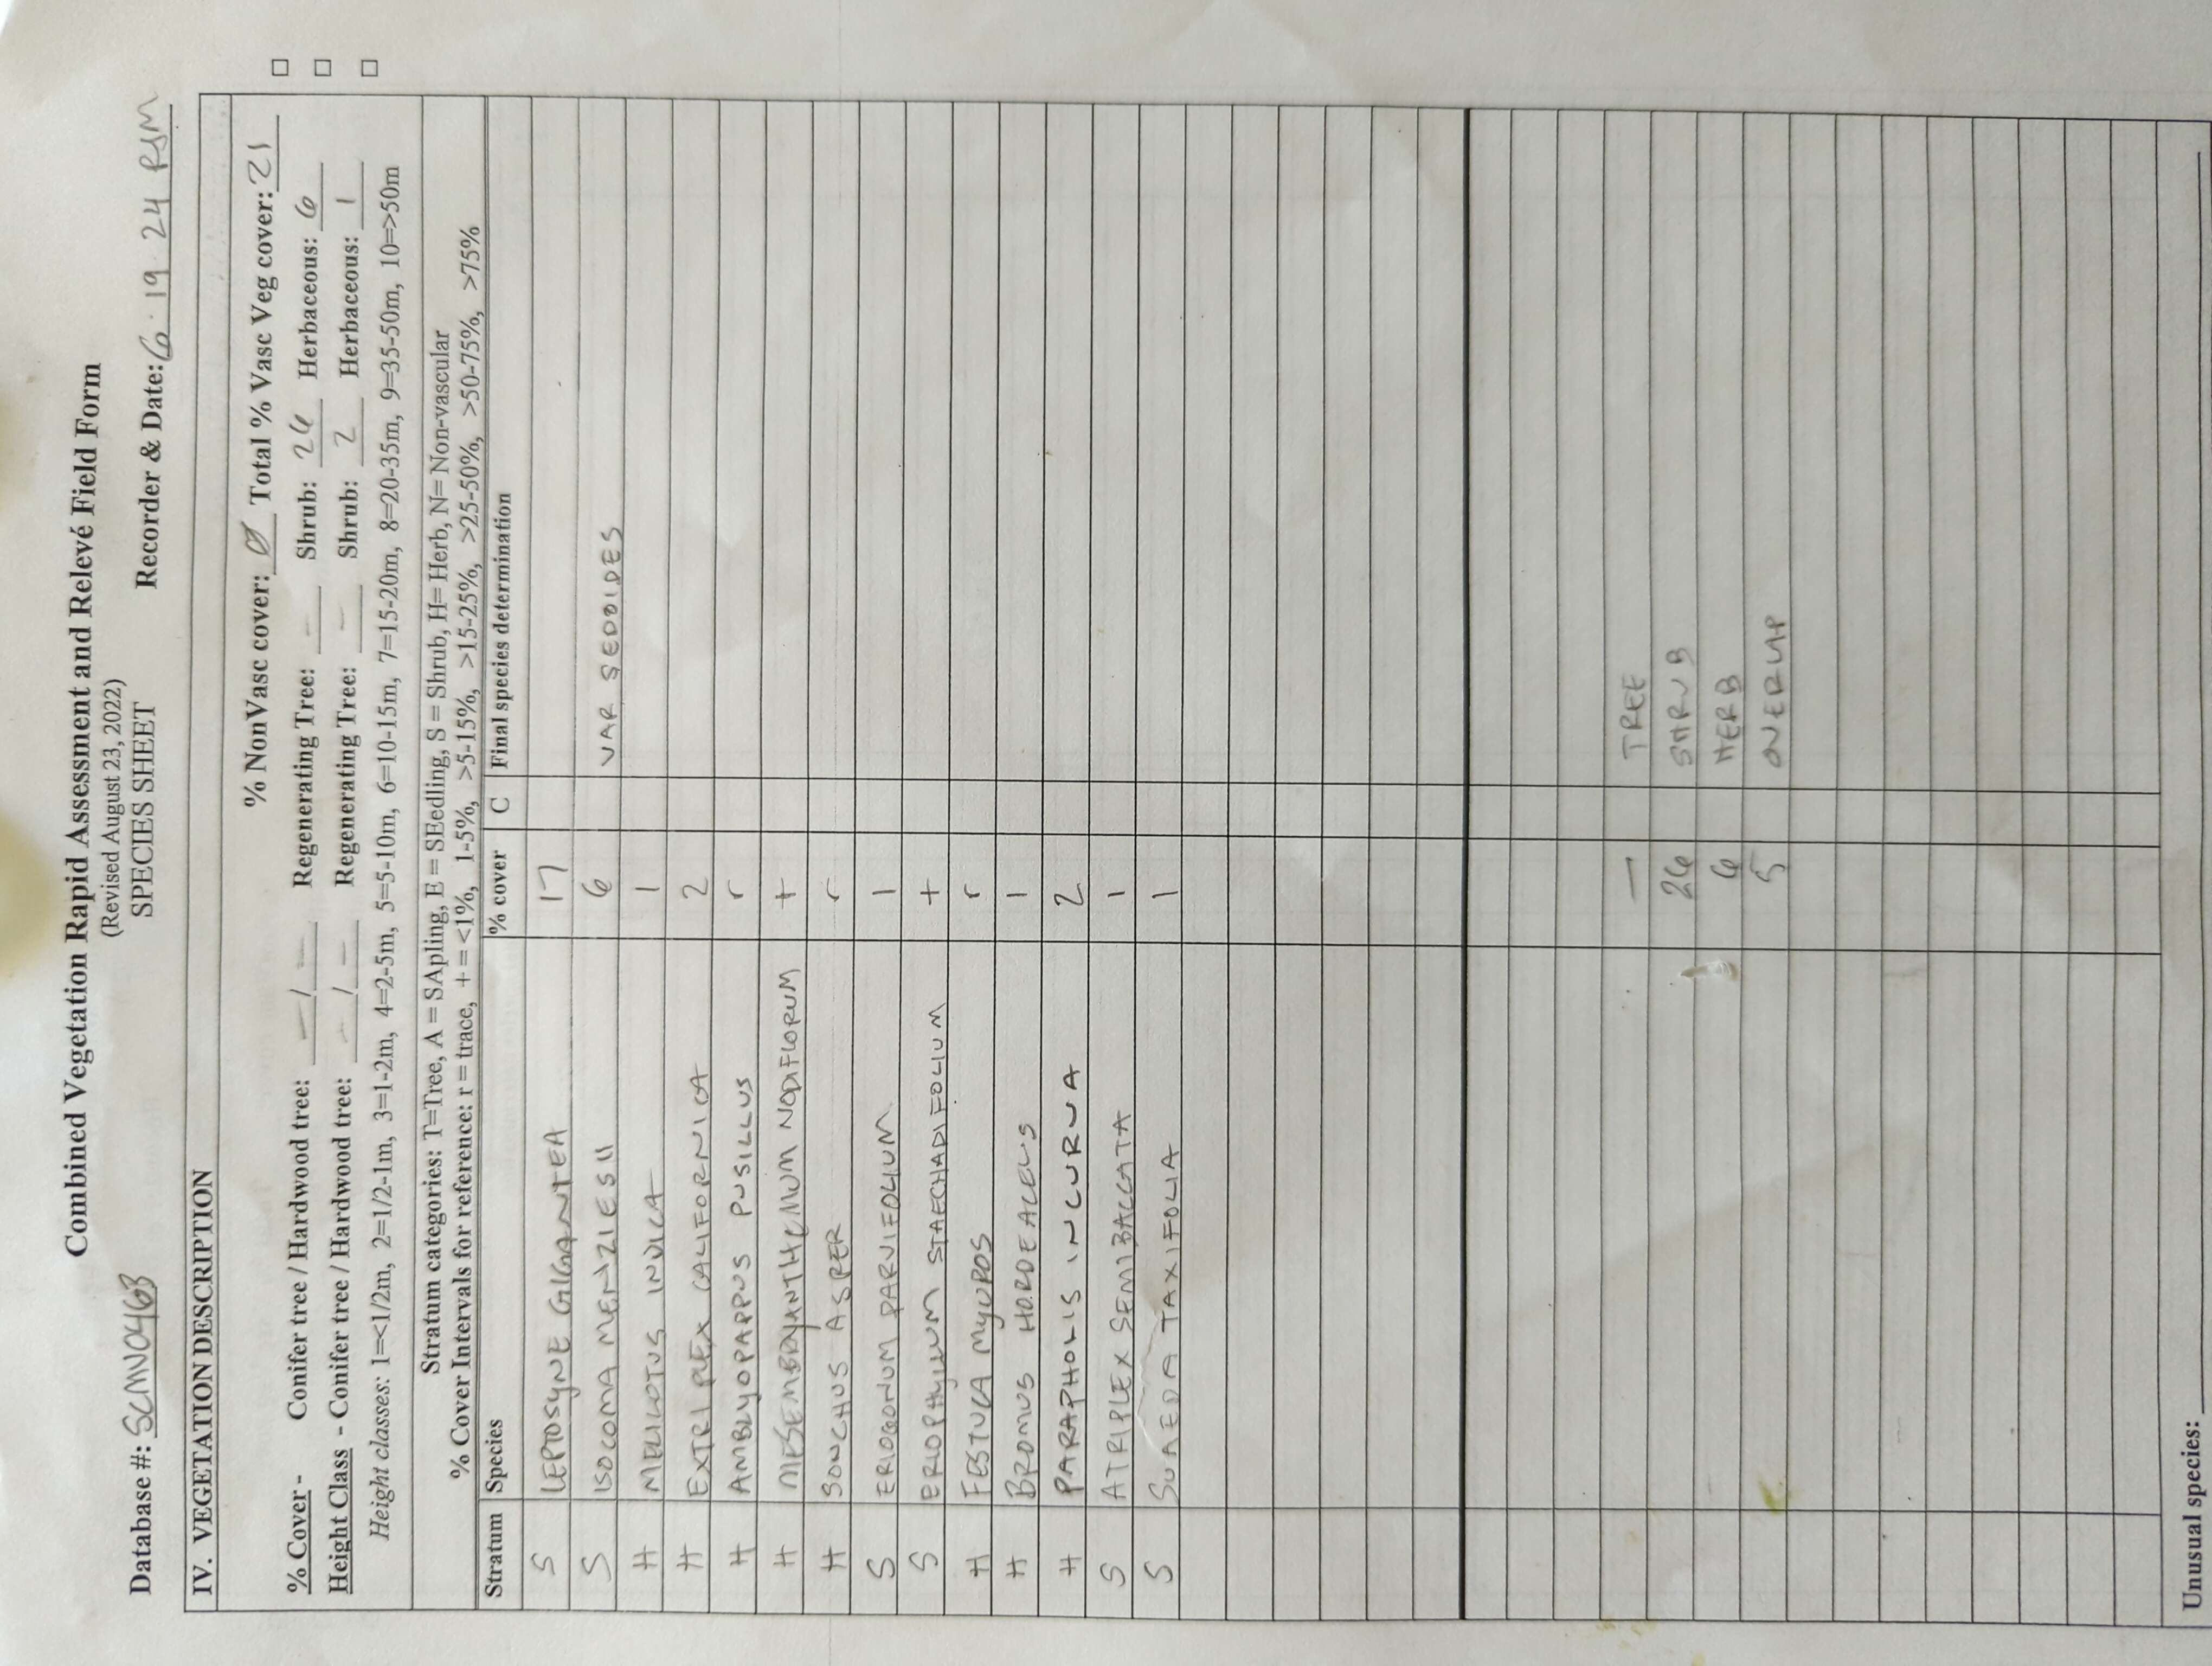 Combined Vegetation Rapid Assessment and Relevé Field Form
(Revised August 23, 2022)
SPECIES SHEET
Database #: SCMN0463 Recorder & Date: 6 · 19 · 24 RSM
IV. VEGETATION DESCRIPTION
% NonVasc cover: Ø Total % Vasc Veg cover: 21
% Cover - Conifer tree / Hardwood tree: — / — Regenerating Tree: — Shrub: 26 Herbaceous: 6
Height Class - Conifer tree / Hardwood tree: — / — Regenerating Tree: — Shrub: 2 Herbaceous: 1
Height classes: 1=<1/2m, 2=1/2-1m, 3=1-2m, 4=2-5m, 5=5-10m, 6=10-15m, 7=15-20m, 8=20-35m, 9=35-50m, 10=>50m
Stratum categories: T=Tree, A = SApling, E = SEedling, S = Shrub, H= Herb, N= Non-vascular
% Cover Intervals for reference: r = trace, + = <1%, 1-5%, >5-15%, >15-25%, >25-50%, >50-75%, >75%
Stratum Species % cover C Final species determination
S LEPTOSYNE GIGANTEA 17
S ISOCOMA MENZIESII 6 VAR SEDOIDES
H MELILOTUS INDICA 1
H EXTRIPLEX CALIFORNICA 2
H AMBLYOPAPPUS PUSILLUS r
H MESEMBRYANTHEMUM NODIFLORUM +
H SONCHUS ASPER r
S ERIOGONUM PARVIFOLIUM 1
S ERIOPHYLLUM STAECHADIFOLIUM +
H FESTUCA MYUROS r
H BROMUS HORDEACEUS 1
H PARAPHOLIS INCURVA 2
S ATRIPLEX SEMIBACCATA 1
S SUAEDA TAXIFOLIA 1
— TREE
26 SHRUB
6 HERB
5 OVERLAP
Unusual species: